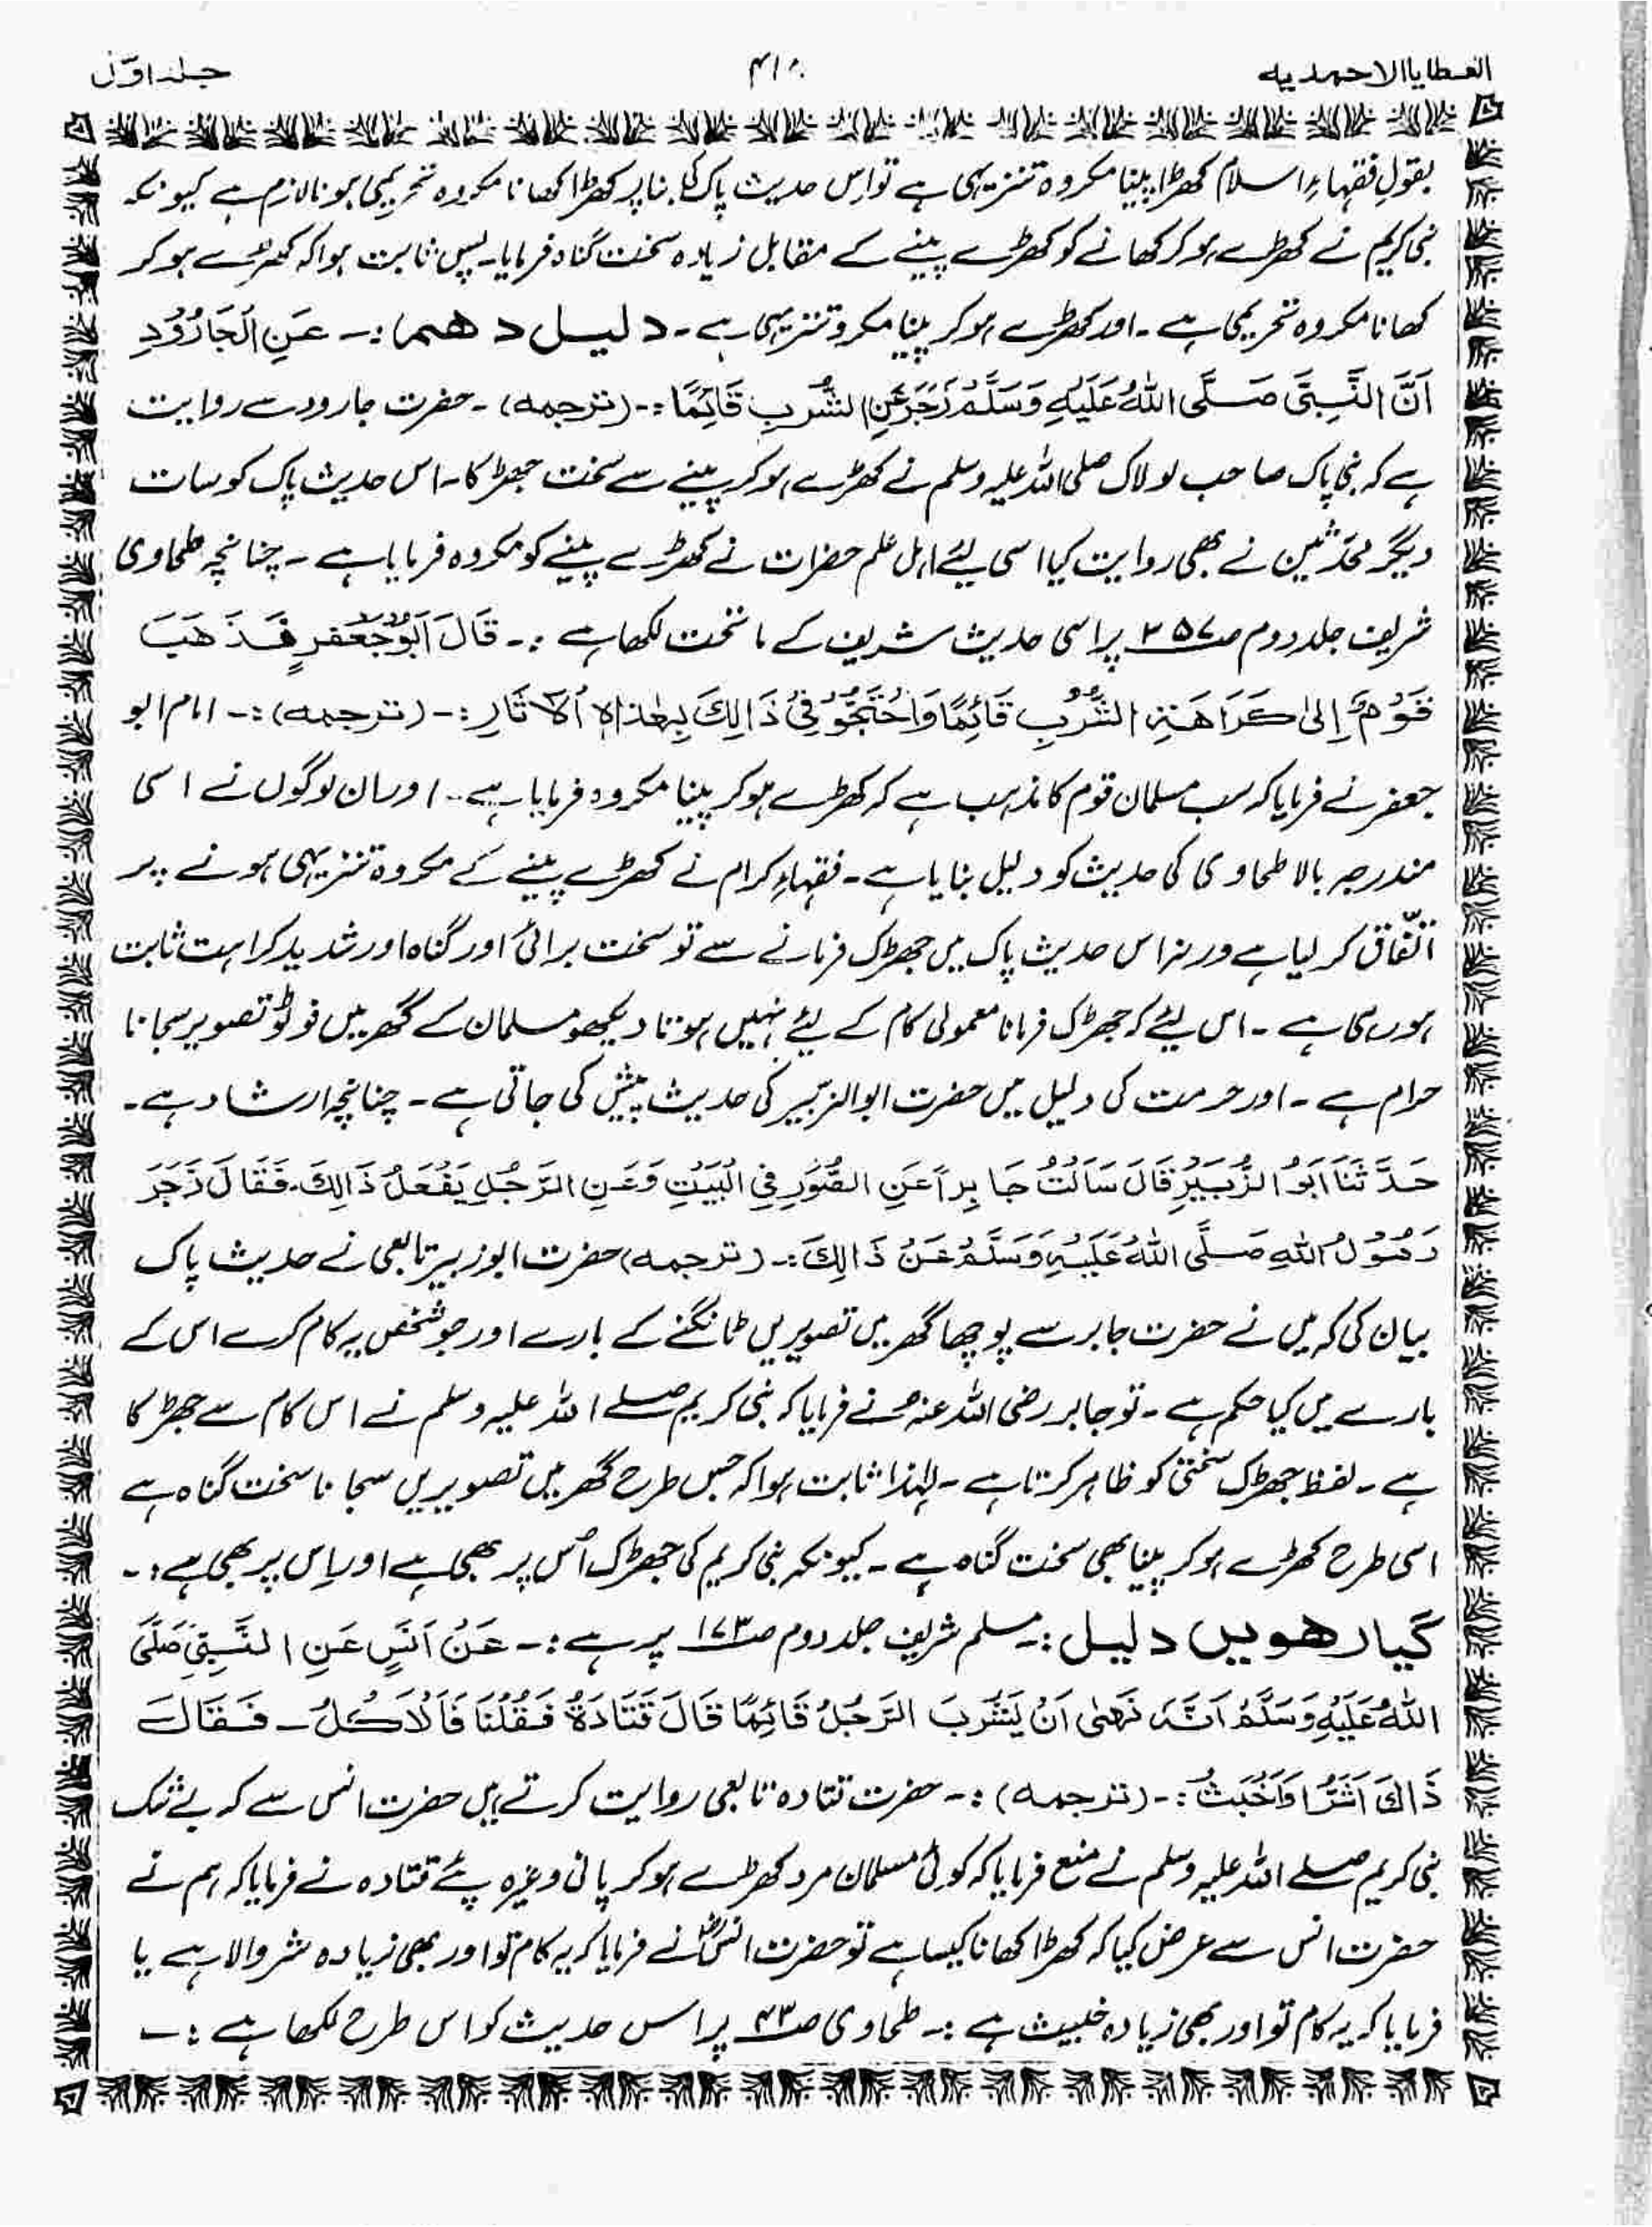 العطایا الاحمدیه ۴۱۰ جلد اوّل
بقولِ فقہاءِ اسلام کھڑا پینا مکروہ تنزیہی ہے تو اِس حدیث پاک کی بنا پر کھڑا کھانا مکروہ تحریمی ہونا لازم ہے کیونکہ
نبی کریم نے کھڑے ہو کر کھانے کو کھڑے پینے کے مقابل زیادہ سخت گناہ فرمایا۔ پس ثابت ہوا کہ کھڑے ہو کر
کھانا مکروہ تحریمی ہے ۔ اور کھڑے ہو کر پینا مکرو تنزیہی ہے ۔ دلیل دھم :۔ عَنِ الْجَارُوْدِ
اَنَّ النَّبِیَّ صَلَّی اللّٰہُ عَلَیْہِ وَسَلَّمَ زَجَرَ عَنِ الشُّرْبِ قَائِمًا :۔ (ترجمہ) ۔ حضرت جارود سے روایت
ہے کہ نبی پاک صاحب لولاک صلی اللہ علیہ وسلم نے کھڑے ہو کر پینے سے سخت جھڑکا ۔ اس حدیث پاک کو سات
دیگر محدّثین نے بھی روایت کیا اسی لیئے اہل علم حضرات نے کھڑے پینے کو مکروہ فرمایا ہے ۔ چنانچہ طحاوی
شریف جلد دوم صـ۳۵۷ پر اسی حدیث شریف کے ماتحت لکھا ہے :۔ قَالَ اَبُوْجَعْفَرٍ فَذَھَبَ
قَوْمٌ اِلٰی کَرَاھَۃِ الشُّرْبِ قَائِمًا وَاحْتَجُّوْ فِیْ ذَالِکَ بِھٰذِہِ اْلآثَارِ :۔ (ترجمہ) :۔ امام ابو
جعفر نے فرمایا کہ سب مسلمان قوم کا مذہب ہے کہ کھڑے ہو کر پینا مکروہ فرمایا ہے ۔ اور ان لوگوں نے اسی
مندرجہ بالا طحاوی کی حدیث کو دلیل بنایا ہے ۔ فقہاءِ کرام نے کھڑے پینے کے مکروہ تنزیہی ہونے پر
اتّفاق کر لیا ہے ورنہ اس حدیث پاک میں جھڑک فرمانے سے تو سخت برائی اور گناہ اور شدید کراہت ثابت
ہو رہی ہے ۔ اس لیئے کہ جھڑک فرمانا معمولی کام کے لیئے نہیں ہوتا دیکھو مسلمان کے گھر میں فوٹو تصویر سجانا
حرام ہے ۔ اور حرمت کی دلیل میں حضرت ابوالزبیر کی حدیث پیش کی جاتی ہے ۔ چنانچہ ارشاد ہے ۔
حَدَّثَنَا اَبُو الزُّبَیْرِ قَالَ سَاَلْتُ جَابِرًا عَنِ الصُّوَرِ فِی الْبَیْتِ وَعَنِ الرَّجُلِ یَفْعَلُ ذَالِکَ ۔ فَقَالَ زَجَرَ
رَسُوْلُ اللّٰہِ صَلَّی اللّٰہُ عَلَیْہِ وَسَلَّمَ عَنْ ذَالِکَ :۔ (ترجمہ) حضرت ابوزبیر تابعی نے حدیث پاک
بیان کی کہ میں نے حضرت جابر سے پوچھا گھر میں تصویریں ٹانگنے کے بارے اور جو شخص یہ کام کرے اس کے
بارے میں کیا حکم ہے ۔ تو جابر رضی اللہ عنہ نے فرمایا کہ نبی کریم صلے اللہ علیہ وسلم نے اس کام سے جھڑکا
ہے ۔ لفظ جھڑک سختی کو ظاہر کرتا ہے ۔ لہٰذا ثابت ہوا کہ جس طرح گھر میں تصویریں سجانا سخت گناہ ہے
اسی طرح کھڑے ہو کر پینا بھی سخت گناہ ہے ۔ کیونکہ نبی کریم کی جھڑک اُس پر بھی ہے اور اِس پر بھی ہے :۔
گیارھویں دلیل :۔ مسلم شریف جلد دوم صـ۱۷۳ پر ہے :۔ عَنْ اَنَسٍ عَنِ النَّبِیِّ صَلَّی
اللّٰہُ عَلَیْہِ وَسَلَّمَ اَنَّہ نَھٰی اَنْ یَشْرِبَ الرَّجُلُ قَائِمًا قَالَ قَتَادَۃُ فَقُلْنَا فَاَلْاَکْلُ ۔ فَقَالَ
ذَالِکَ اَشَرُّ اَوْ اَخْبَثُ :۔ (ترجمہ) :۔ حضرت قتادہ تابعی روایت کرتے ہیں حضرت انس سے کہ بے شک
نبی کریم صلے اللہ علیہ وسلم نے منع فرمایا کہ کوئی مسلمان مرد کھڑے ہو کر پانی وغیرہ پیئے قتادہ نے فرمایا کہ ہم نے
حضرت انس سے عرض کیا کہ کھڑا کھانا کیسا ہے تو حضرت انسؓ نے فرمایا کہ یہ کام تو اور بھی زیادہ شر والا ہے یا
فرمایا کہ یہ کام تو اور بھی زیادہ خبیث ہے :۔ طحاوی صـ۴۳ پر اس حدیث کو اس طرح لکھا ہے :۔